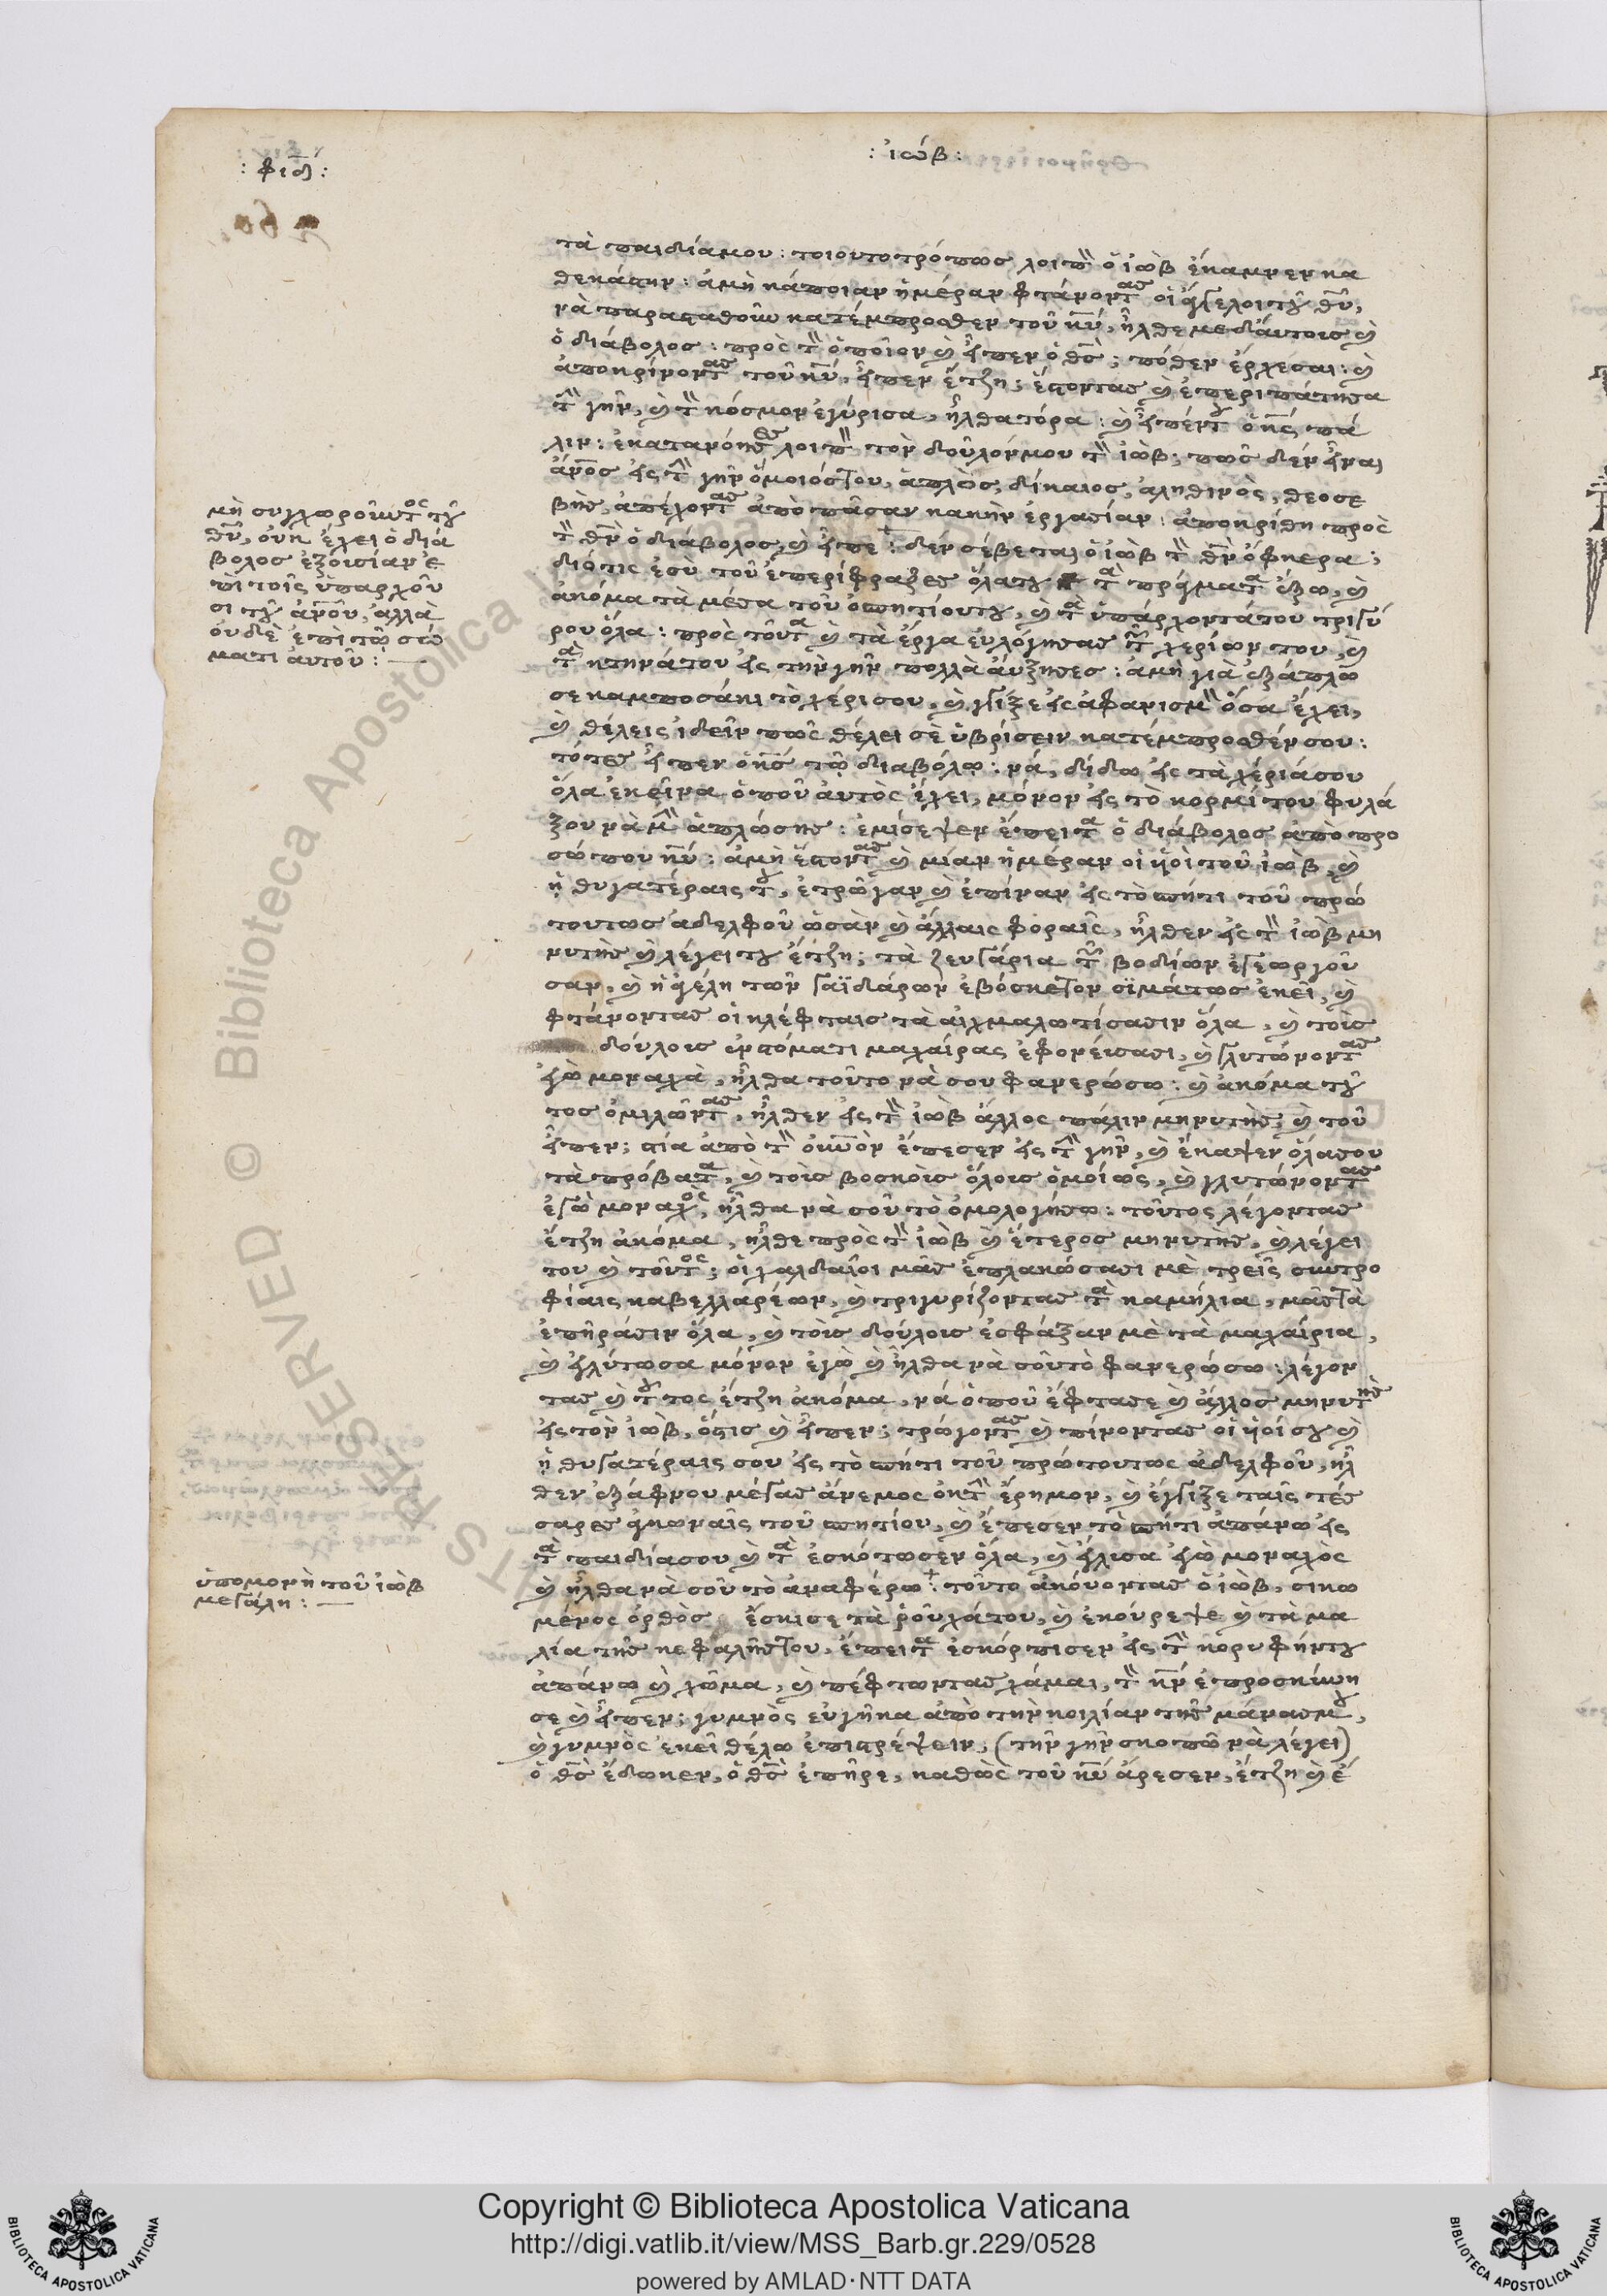 : φιδ :
: ἰώβ :
τὰ παιδία μου : τοιουτοτρόπως λοιπὸν ὁ ἰὼβ ἔκαμνεν κα
θεκάστην : ἀμὴ κάποιαν ἡμέραν φτάνοντας οἱ ἄγγελοι τοῦ θῦ,
νὰ παρασταθοῦν κατέμπροσθεν τοῦ κυ, ἦλθε με δαύτοις καὶ
ὁ διάβολος : πρὸς τὸν ὁποῖον καὶ εἶπεν ὁ θς ; πόθεν ἔρχεσαι : καὶ
ἀποκρίνοντας τοῦ κυ, εἶπεν ἔτζη ; ἔστοντας καὶ ἐπεριπάτησα
τὴν γῆν, καὶ τὸν κόσμον ἐγύρισα, ἦλθα τόρα : καὶ εἶπέν του ὁ κς πά
λιν : ἐκατανόησες λοιπὸν τὸν δοῦλόν μου τὸν ἰὼβ ; πῶς δὲν εἶναι
ἄνος εἰς τὴν γῆν ὅμοιός του, ἁπλὼς, δίκαιος, ἀληθινὸς, θεοσε
βὴς, ἀπέχοντας ἀπὸ πᾶσαν κακὴν ἐργασίαν : ἀποκρίθη πρὸς
τὸν θν ὁ διάβολος, καὶ εἶπε : δὲν σέβεται ὁ ἰὼβ τὸν θν ὄφκερα ;
διότις ἐσὺ τοῦ ἐπερίφραξες ὅλα του τὰ πράγματα ἔξω, καὶ
ἀκόμα τὰ μέσα τοῦ ὁσπητίου του, καὶ τὰ ὑπάρχοντά του τριγύ
ρου ὅλα : πρὸς τοῦτα καὶ τὰ ἔργα εὐλόγησας τῶν χερίων του, καὶ
τὰ κτηνά του εἰς τὴν γῆν πολλὰ αὔξησες : ἀμὴ γιὰ ἐξάπλω
σε καμποσάκι τὸ χέρι σου, καὶ γγίξε εἰς ἀφανισμὸν ὅσα ἔχει,
καὶ θέλεις ἰδεῖν πῶς θέλει σε ὑβρίσειν κατέμπροσθέν σου :
τότες εἶπεν ὁ κς τῶ διαβόλω : νά, δίδω εἰς τὰ χέριά σου
ὅλα ἐκεῖνα ὁποῦ αὐτὸς ἔχει, μόνον εἰς τὸ κορμί του φυλά
ξου νὰ μὴν ἁπλώσης : ἐμίσεψεν ἔπειτα ὁ διάβολος ἀπὸ προ
σώπου κυ : ἀμὴ ἔστοντας καὶ μίαν ἡμέραν οἱ ὑοὶ τοῦ ἰὼβ, καὶ
ἡ θυγατέραις του, ἐτρῶγαν καὶ ἐπίναν εἰς τὸ σπήτι τοῦ πρώ
του τως ἀδελφοῦ ὡσὰν καὶ ἄλλαις φοραῖς, ἦλθεν εἰς τὸν ἰὼβ μη
νυτὴς καὶ λέγει του ἔτζη ; τὰ ζευγάρια τῶν βοδίων ἐγεωργοῦ
σαν, καὶ ἡ ἀγέλη τῶν γαϊδάρων ἐβόσκετον σϊμάτως ἐκεῖ, καὶ
φτάνοντας οἱ κλέφταις τὰ αἰχμαλωτίσασιν ὅλα, καὶ τοὶς
δούλοις ἐν στόματι μαχαίρας ἐφονεύσασι, καὶ γλυτώνοντας
ἐγὼ μοναχὰ, ἦλθα τοῦτο νὰ σου φανερώσω : καὶ ἀκόμα τού
τος ὁμιλῶντας, ἦλθεν εἰς τὸν ἰὼβ ἄλλος πάλιν μηνυτὴς, καὶ τοῦ
εἶπεν ; στία ἀπὸ τὸν οὐνὸν ἔπεσεν εἰς τὴν γῆν, καὶ ἔκαψεν ὅλα σου
τὰ πρόβατα, καὶ τοὶς βοσκοὶς ὅλοις ὁμοίως, καὶ γλυτώνοντας
ἐγὼ μοναχὸς, ἦλθα νὰ σοῦ τὸ ὁμολογήσω : τοῦτος λέγοντας
ἔτζη ἀκόμα, ἦλθε πρὸς τὸν ἰὼβ καὶ ἕτερος μηνυτὴς, καὶ λέγει
του καὶ τοῦτος ; οἱ χαλδαῖοι μᾶς ἐπλακώσασι μὲ τρεῖς συντρο
φίαις καβελλαρέων, καὶ τριγυρίζοντας τὰ καμήλια, μᾶς τὰ
ἐπῆράσιν ὅλα, καὶ τοὶς δούλοις ἐσφάξαν μὲ τὰ μαχαίρια,
καὶ ἐγλύτωσα μόνον ἐγὼ καὶ ἦλθα νὰ σοῦ τὸ φανερώσω : λέγον
τας καὶ τοῦτος ἔτζη ἀκόμα, νά ὁποῦ ἔφτασε καὶ ἄλλος μηνυτὴς
εἰς τὸν ἰὼβ, ὅστις καὶ εἶπεν ; τρώγοντας καὶ πίνοντας οἱ ὑοί σου καὶ
ἡ θυγατέραις σου εἰς τὸ σπήτι τοῦ πρώτου τως ἀδελφοῦ, ἦλ
θεν ἐξάφνου μέγας ἄνεμος ἐκ τὴν ἔρημον, καὶ ἔγγιξε ταῖς τέσ
σαρες ἀγκωναῖς τοῦ σπητίου, καὶ ἔπεσεν τὸ σπήτι ἀπάνω εἰς
τὰ παιδία σου καὶ τὰ ἐσκότωσεν ὅλα, καὶ ἐγλισα ἐγὼ μοναχὸς
καὶ ἦλθα νὰ σοῦ τὸ ἀναφέρω : τοῦτο ἀκούοντας ὁ ἰὼβ, σικω
μένος ὀρθὸς ἔσκισε τὰ ῥοῦχά του, καὶ ἐκούρεψε καὶ τὰ μα
λία τῆς κεφαλῆς του, ἔπειτα ἐσκόρπισεν εἰς τὴν κορυφήν του
ἀπάνω καὶ χῶμα, καὶ πέφτωντας χάμαι, τὸν κν ἐπροσκύνη
σε καὶ εἶπεν ; γυμνὸς εὐγῆκα ἀπὸ τὴν κοιλίαν τῆς μάνας μου,
καὶ γυμνὸς ἐκεῖ θέλω ἐπιστρέψειν, (τὴν γῆν σκοπῶ νὰ λέγει)
ὁ θς ἔδωκεν, ὁ θς ἐπῆρε, καθὼς τοῦ κυ ἄρεσεν, ἔτζη καὶ ἐ
μὴ συγχωροῦντος τοῦ
θυ, οὐκ ἔχει ὁ διά
βολος ἐξουσίαν ἐ
πὶ τοῖς ὑπαρχου
σι τοῦ ἀνου, ἀλλὰ
οὐδὲ ἐπὶ τῶ σώ
ματι αὐτοῦ : —
ὑπομονὴ τοῦ ἰὼβ
μεγάλη : —
Copyright © Biblioteca Apostolica Vaticana
http://digi.vatlib.it/view/MSS_Barb.gr.229/0528
powered by AMLAD·NTT DATA